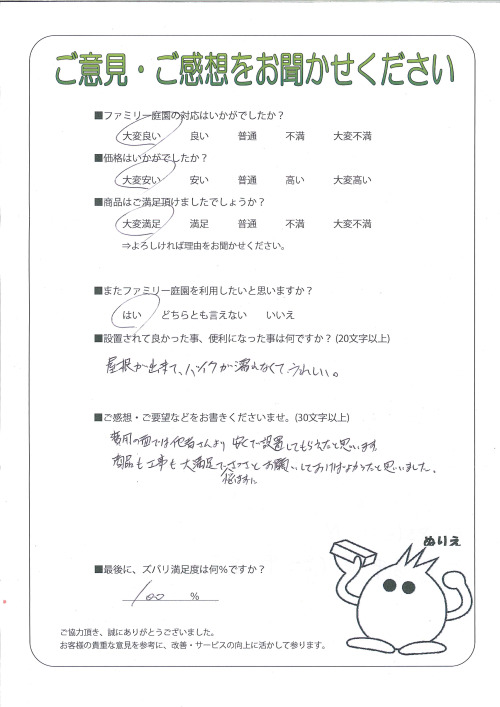 ご意見・ご感想をお聞かせください
■ファミリー庭園の対応はいかがでしたか？
大変良い 良い 普通 不満 大変不満
■価格はいかがでしたか？
大変安い 安い 普通 高い 大変高い
■商品はご満足頂けましたでしょうか？
大変満足 満足 普通 不満 大変不満
⇒よろしければ理由をお聞かせください。
■またファミリー庭園を利用したいと思いますか？
はい どちらとも言えない いいえ
■設置されて良かった事、便利になった事は何ですか？(20文字以上)
屋根が出来て、バイクが濡れなくてうれしい。
■ご感想・ご要望などをお書きくださいませ。(30文字以上)
費用の面では他者さんより安くで設置してもらえたと思います
商品も工事も大満足でさっさとお願いしておけばよかったと思いました。
ぬりえ
■最後に、ズバリ満足度は何%ですか？
100 %
ご協力頂き、誠にありがとうございました。
お客様の貴重な意見を参考に、改善・サービスの向上に活かして参ります。